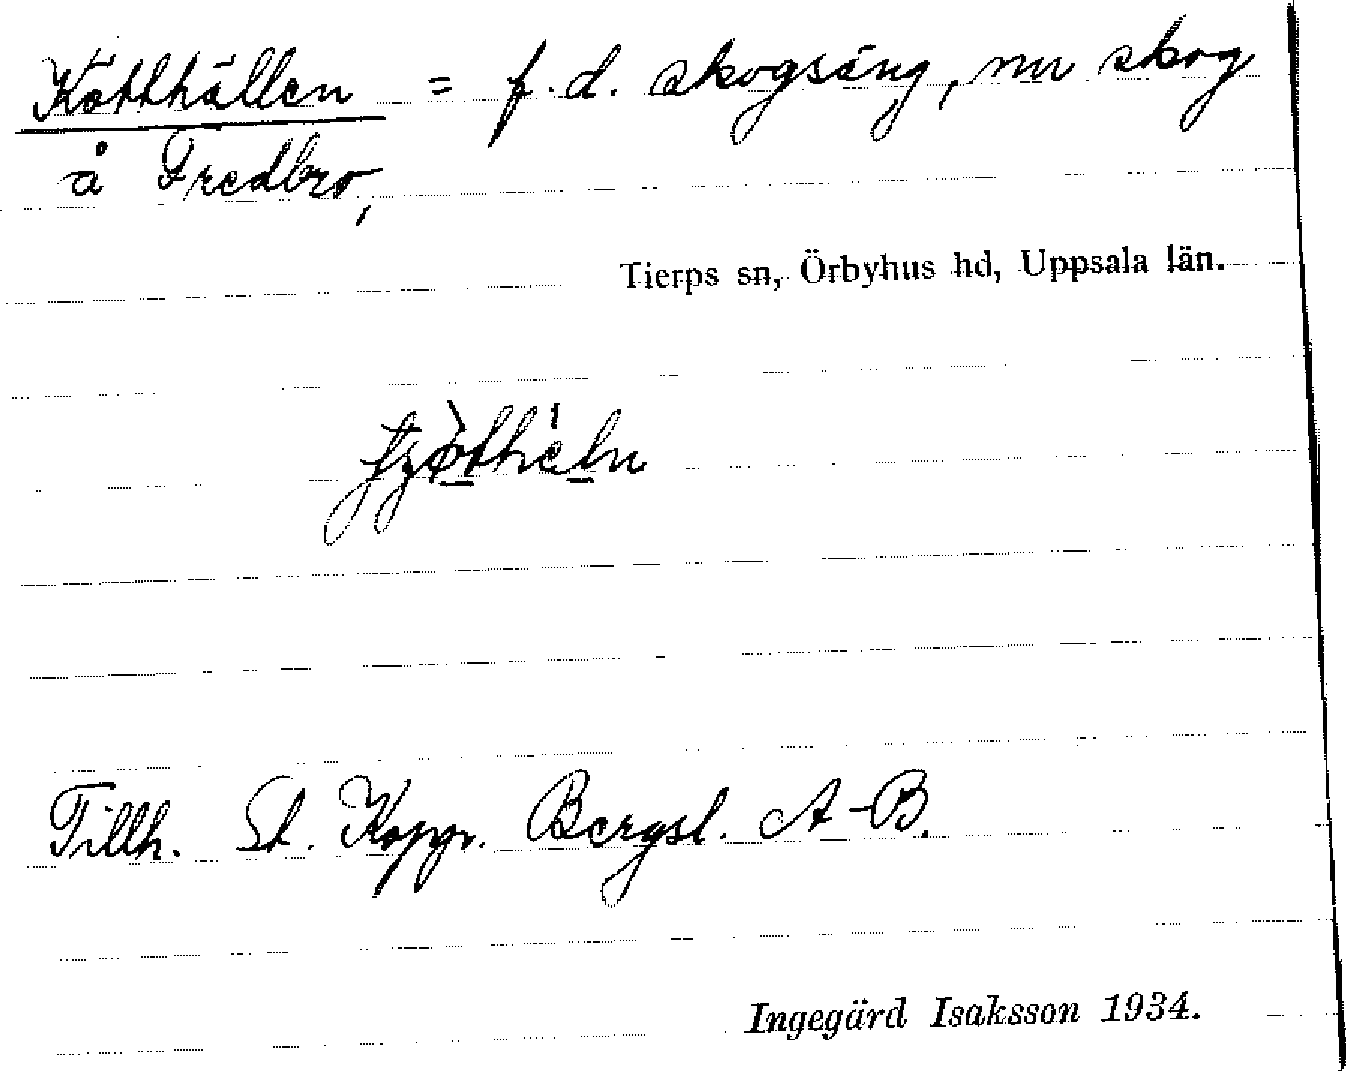 Kötthällen = f.d. skogsäng, nu skog
å Fredbro,
Tierps sn, Örbyhus hd, Uppsala län.
Tillh. St. Kopp. Bergsl. A-B.
Ingegärd Isaksson 1934.